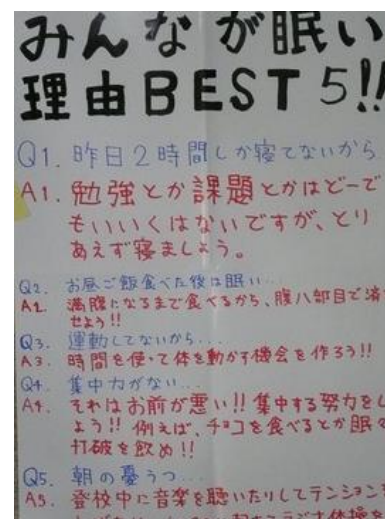 みんなが眠い
理由BEST5!!
Q1. 昨日2時間しか寝てないから
A1. 勉強とか課題とかはどーで
もいいくはないですが、とり
あえず寝ましょう。
Q2. お昼ご飯食べた後は眠い…
A2. 満腹になるまで食べるから、腹八部目で済
せよう!!
Q3. 運動してないから…
A3. 時間を使って体を動かす機会を作ろう!!
Q4. 集中力がない…
A4. それはお前が悪い!! 集中する努力をし
よう!! 例えば、チョコを食べるとか眠々
打破を飲め!!
Q5. 朝の憂うつ…
A5. 登校中に音楽を聴いたりしてテンション